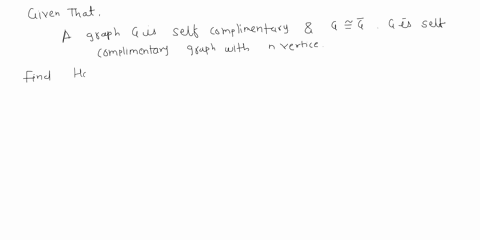 Given That.
A graph G is self complimentary & G ≅ G̅. G is self
complimentary graph with n vertice.
find Ho